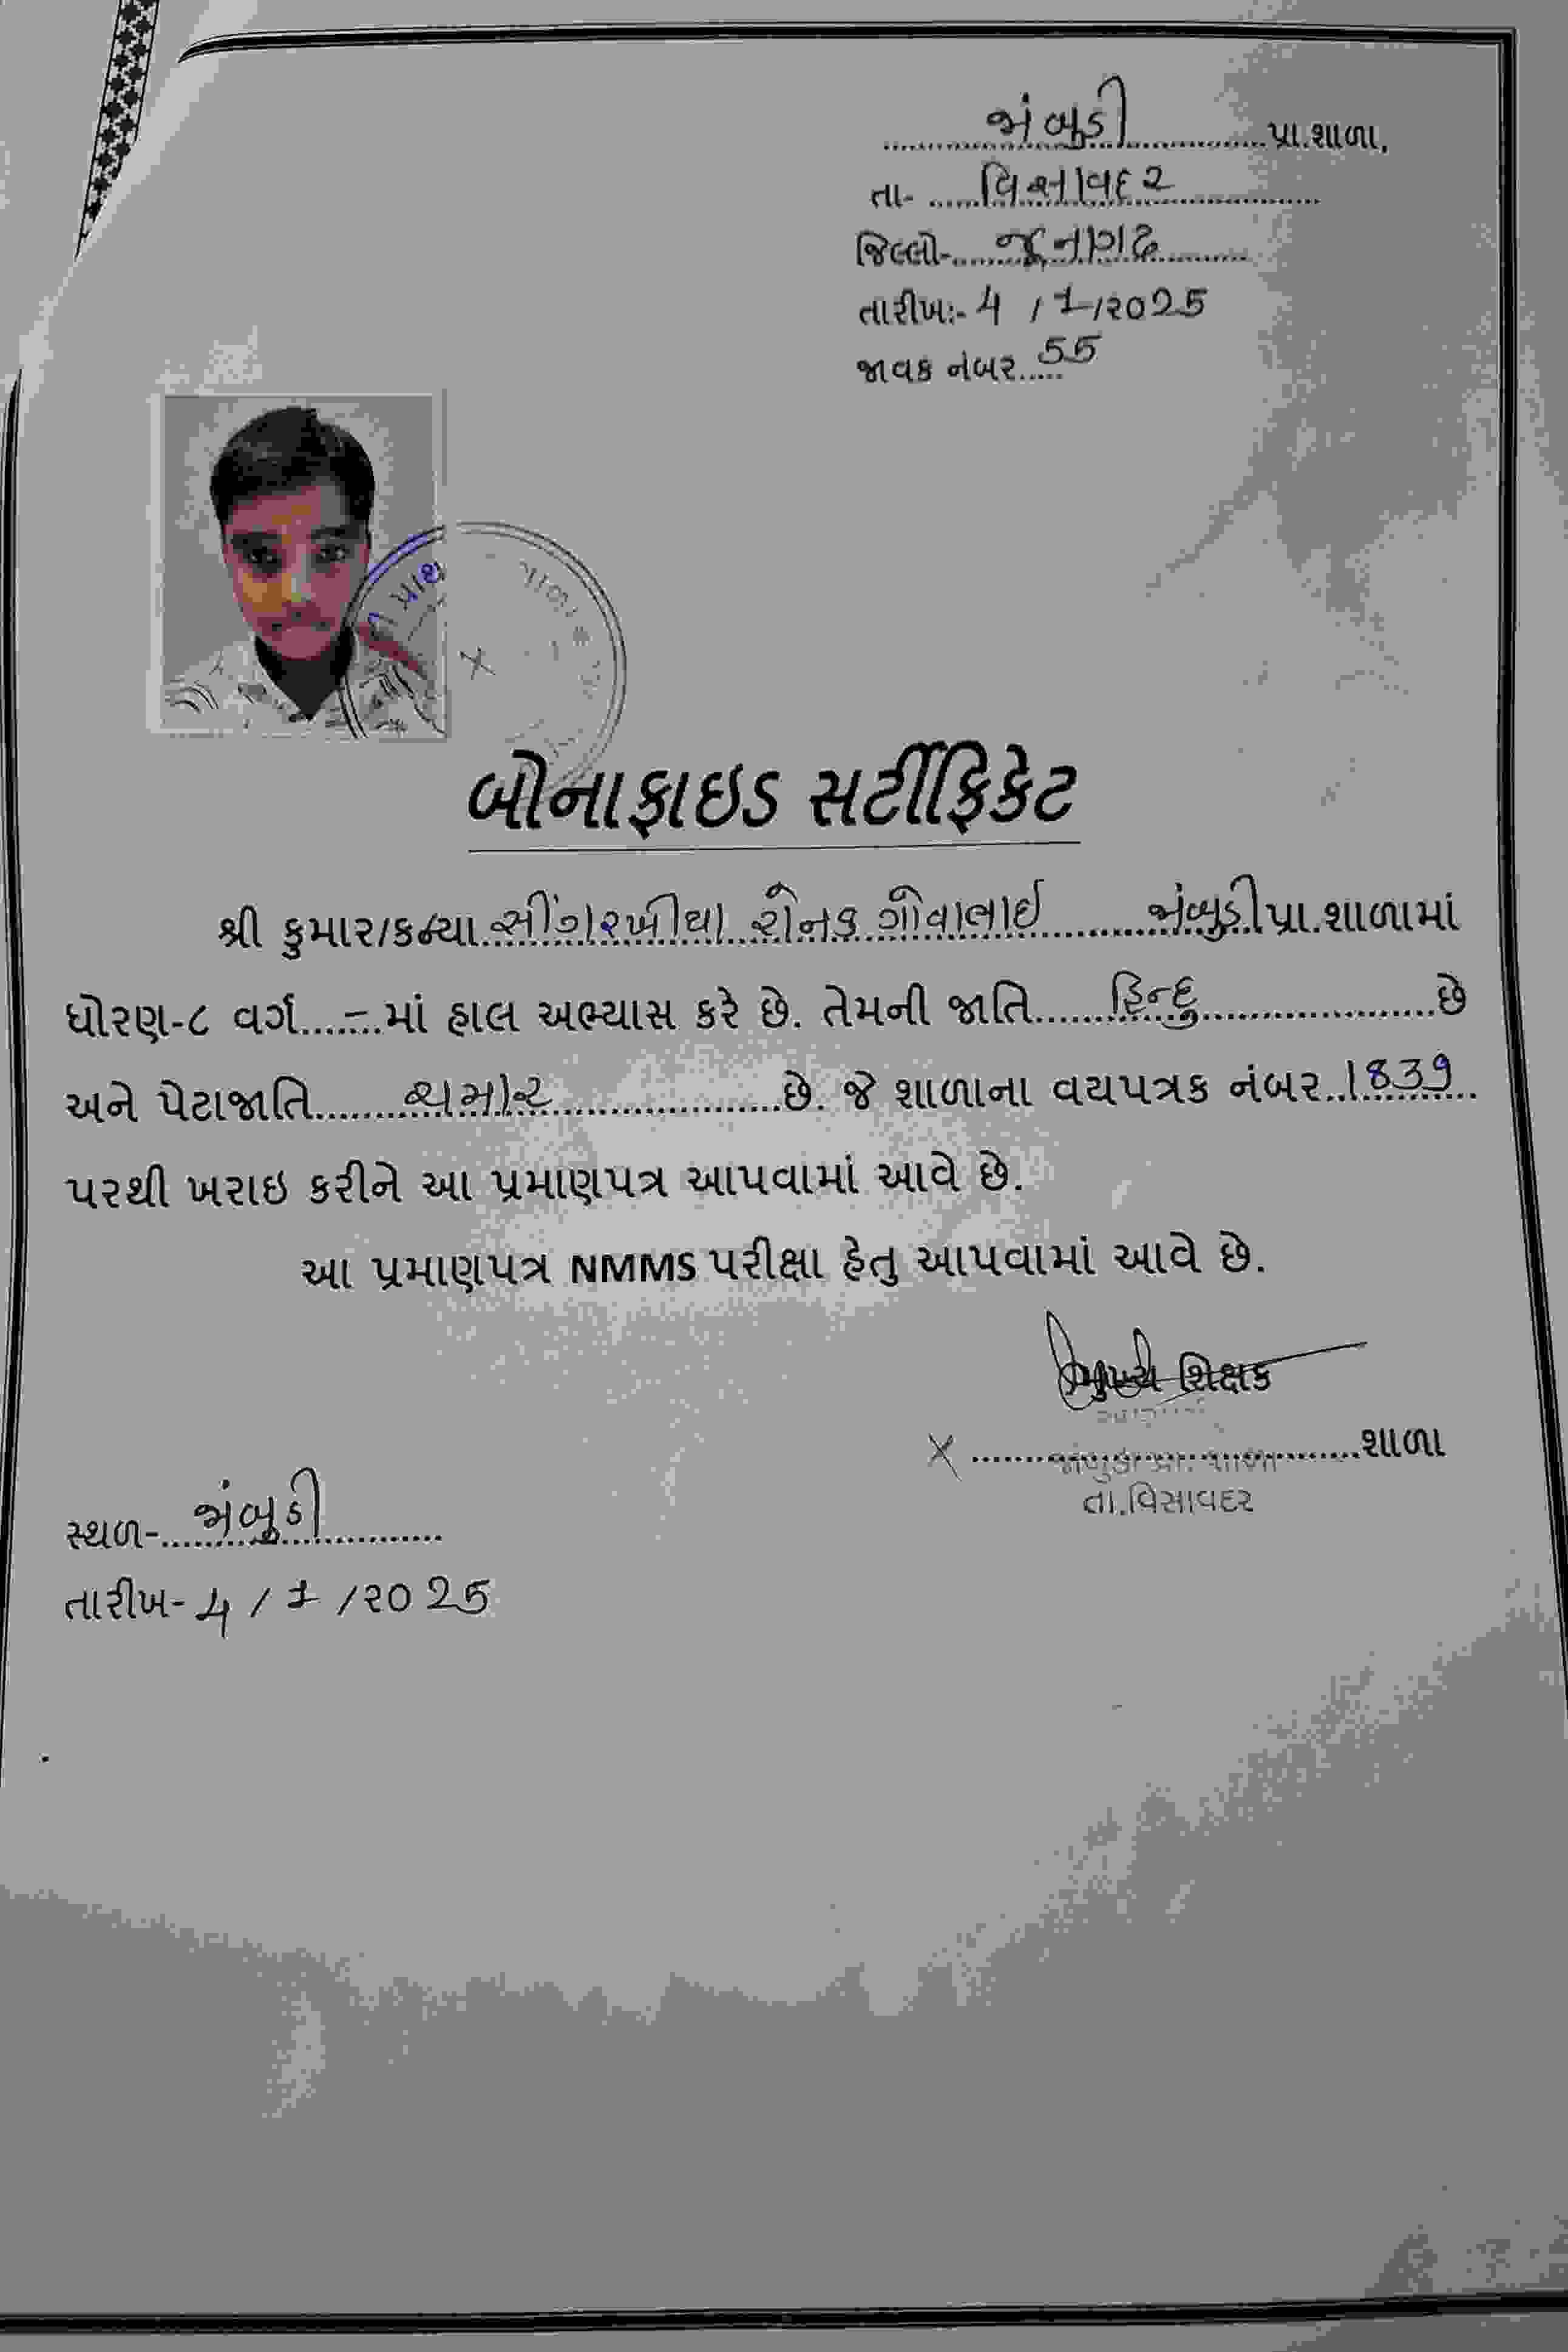 જાંબુડી પ્રા.શાળા,
તા- વિસાવદર
જિલ્લો- જૂનાગઢ
તારીખ:- 4 / 1 /૨૦25
જાવક નંબર 55
બોનાફાઇડ સર્ટીફિકેટ
શ્રી કુમાર/કન્યા સીંગરખીયા રોનક ગોવાભાઈ જાંબુડી પ્રા.શાળામાં
ધોરણ-૮ વર્ગ - માં હાલ અભ્યાસ કરે છે. તેમની જાતિ હિન્દુ છે
અને પેટાજાતિ ચમાર છે. જે શાળાના વયપત્રક નંબર 1839
પરથી ખરાઇ કરીને આ પ્રમાણપત્ર આપવામાં આવે છે.
આ પ્રમાણપત્ર NMMS પરીક્ષા હેતુ આપવામાં આવે છે.
મુખ્ય શિક્ષક
X શાળા
જાંબુડી પ્રા. શાળા
તા.વિસાવદર
સ્થળ- જાંબુડી
તારીખ- 4 / 1 /૨૦ 25